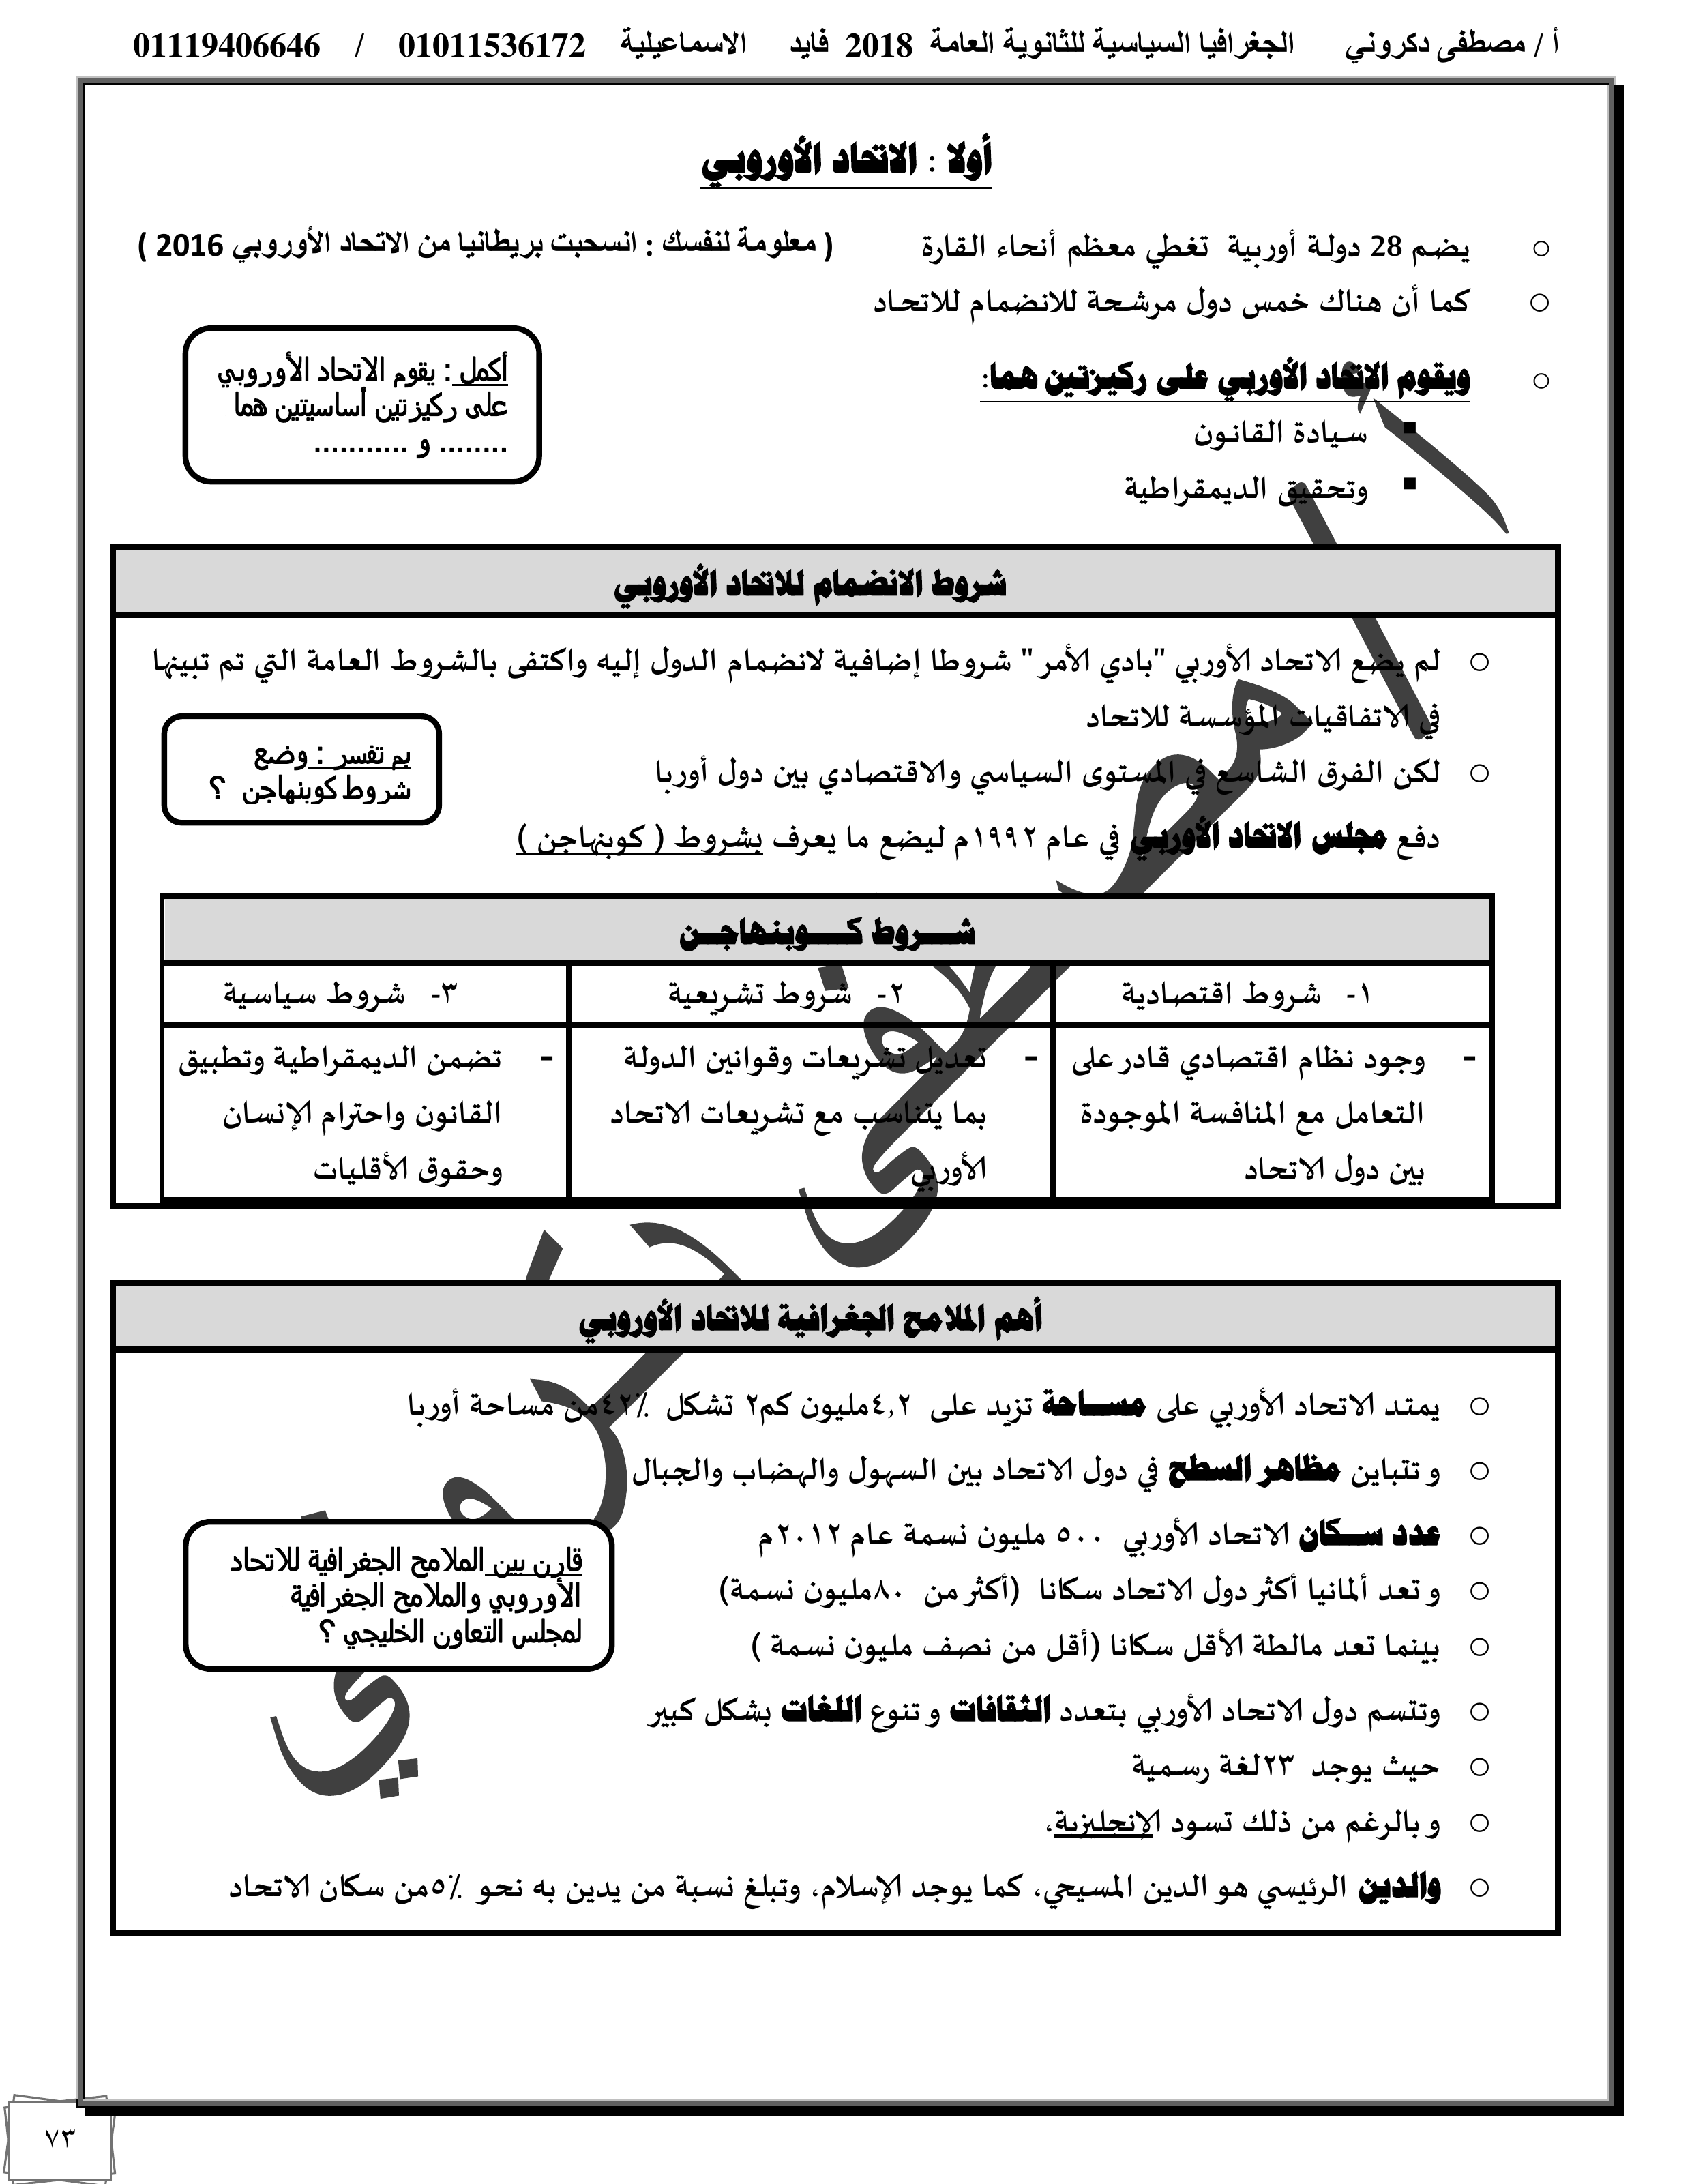 أ / مصطفى دكروني الجغرافيا السياسية للثانوية العامة 2018 فايد الاسماعيلية 01011536172 / 01119406646
أولا : الاتحاد الأوروبي
يضم 28 دولة أوربية تغطي معظم أنحاء القارة ( معلومة لنفسك : انسحبت بريطانيا من الاتحاد الأوروبي 2016 )
كما أن هناك خمس دول مرشحة للانضمام للاتحاد
ويقوم الاتحاد الأوربي على ركيزتين هما:
سيادة القانون
وتحقيق الديمقراطية
أكمل : يقوم الاتحاد الأوروبي
على ركيزتين أساسيتين هما
........ و ...........
شروط الانضمام للاتحاد الأوروبي
لم يضع الاتحاد الأوربي "بادي الأمر" شروطا إضافية لانضمام الدول إليه واكتفى بالشروط العامة التي تم تبينها
في الاتفاقيات المؤسسة للاتحاد
لكن الفرق الشاسع في المستوى السياسي والاقتصادي بين دول أوربا
دفع مجلس الاتحاد الأوربي في عام ١٩٩٢م ليضع ما يعرف بشروط ( كوبنهاجن )
بم تفسر : وضع
شروط كوبنهاجن ؟
شـــروط كـــوبنهاجــن
١- شروط اقتصادية
٢- شروط تشريعية
٣- شروط سياسية
- وجود نظام اقتصادي قادر على
التعامل مع المنافسة الموجودة
بين دول الاتحاد
- تعديل تشريعات وقوانين الدولة
بما يتناسب مع تشريعات الاتحاد
الأوربي
- تضمن الديمقراطية وتطبيق
القانون واحترام الإنسان
وحقوق الأقليات
أهم الملامح الجغرافية للاتحاد الأوروبي
يمتد الاتحاد الأوربي على مســاحة تزيد على ٤,٢مليون كم٢ تشكل ٤٢٪من مساحة أوربا
وتتباين مظاهر السطح في دول الاتحاد بين السهول والهضاب والجبال
عدد ســكان الاتحاد الأوربي ٥٠٠ مليون نسمة عام ٢٠١٢م
وتعد ألمانيا أكثر دول الاتحاد سكانا (أكثر من ٨٠مليون نسمة)
بينما تعد مالطة الأقل سكانا (أقل من نصف مليون نسمة )
وتتسم دول الاتحاد الأوربي بتعدد الثقافات وتنوع اللغات بشكل كبير
حيث يوجد ٢٣لغة رسمية
وبالرغم من ذلك تسود الإنجليزية،
والدين الرئيسي هو الدين المسيحي، كما يوجد الإسلام، وتبلغ نسبة من يدين به نحو ٥٪من سكان الاتحاد
قارن بين الملامح الجغرافية للاتحاد
الأوروبي والملامح الجغرافية
لمجلس التعاون الخليجي ؟
أ / مصطفى دكروني
٧٣